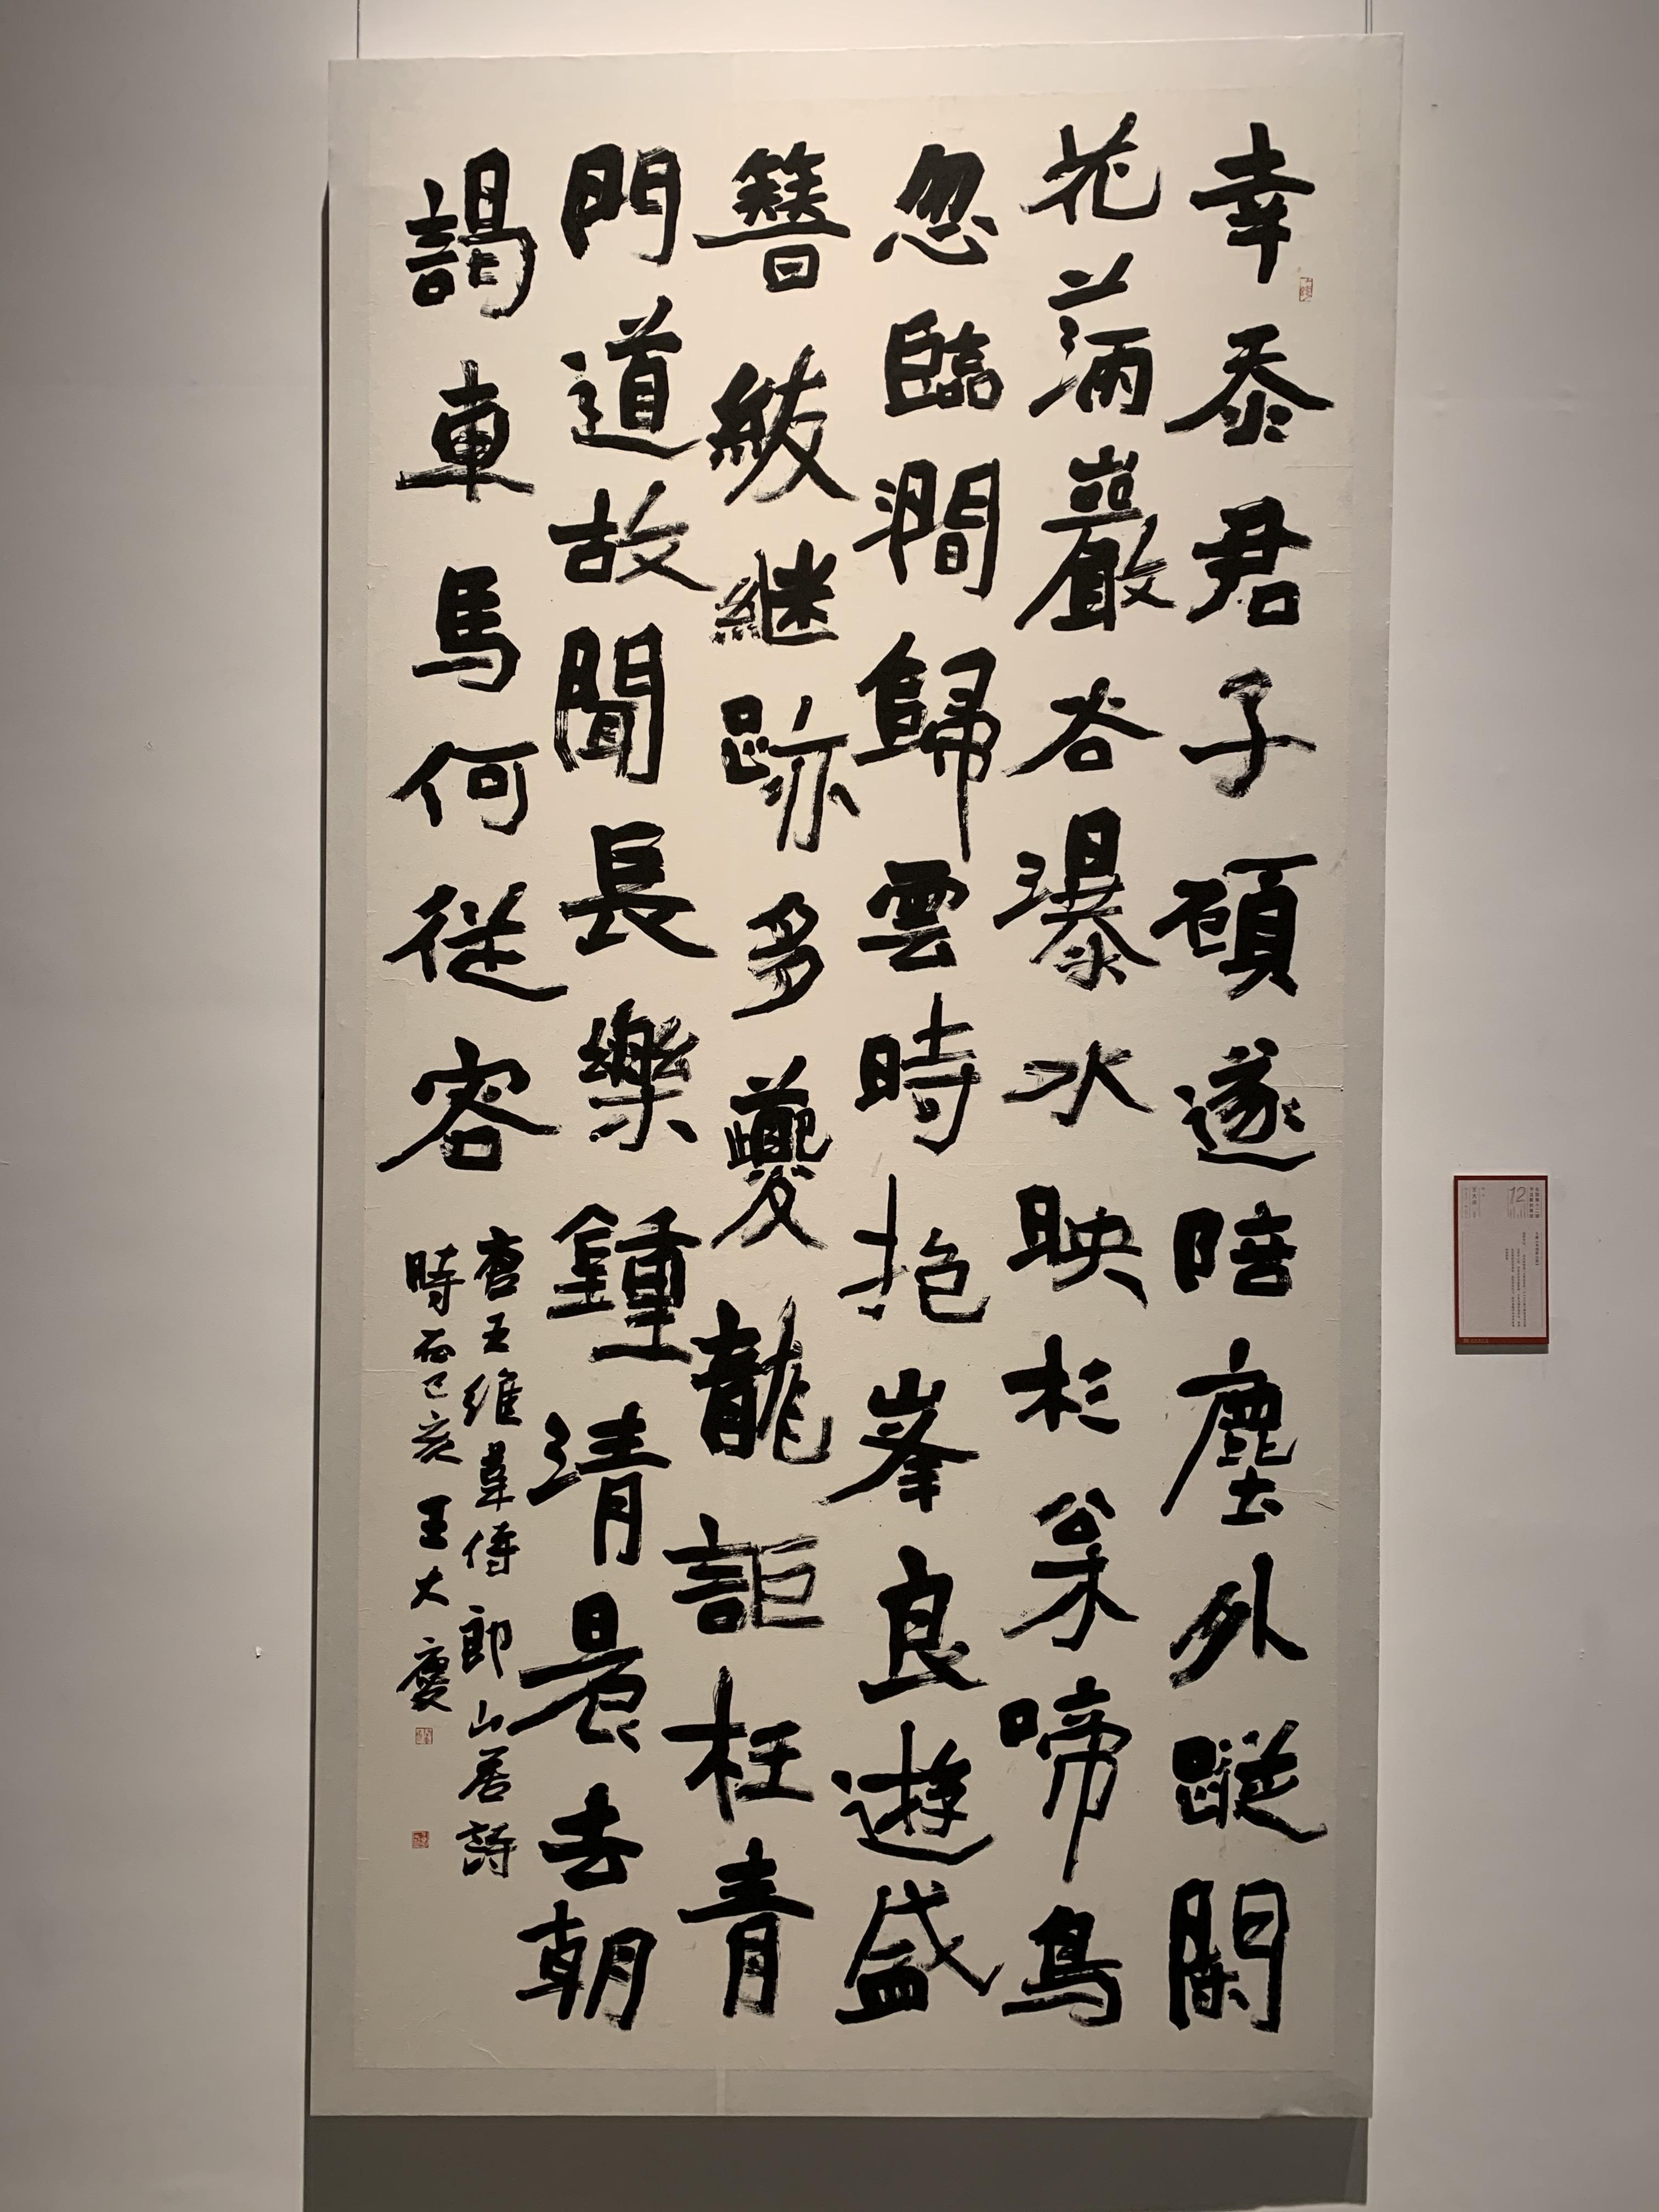 幸忝君子顧遂陪塵外蹤閑
花滿巖谷瀑水映杉松啼鳥
忽臨澗歸雲時抱峯良遊盛
簪紱継跡多夔龍詎枉青
門道故聞長樂鍾清晨去朝
謁車馬何從容
唐王維韋侍郎山居詩
時在己亥王大慶
12